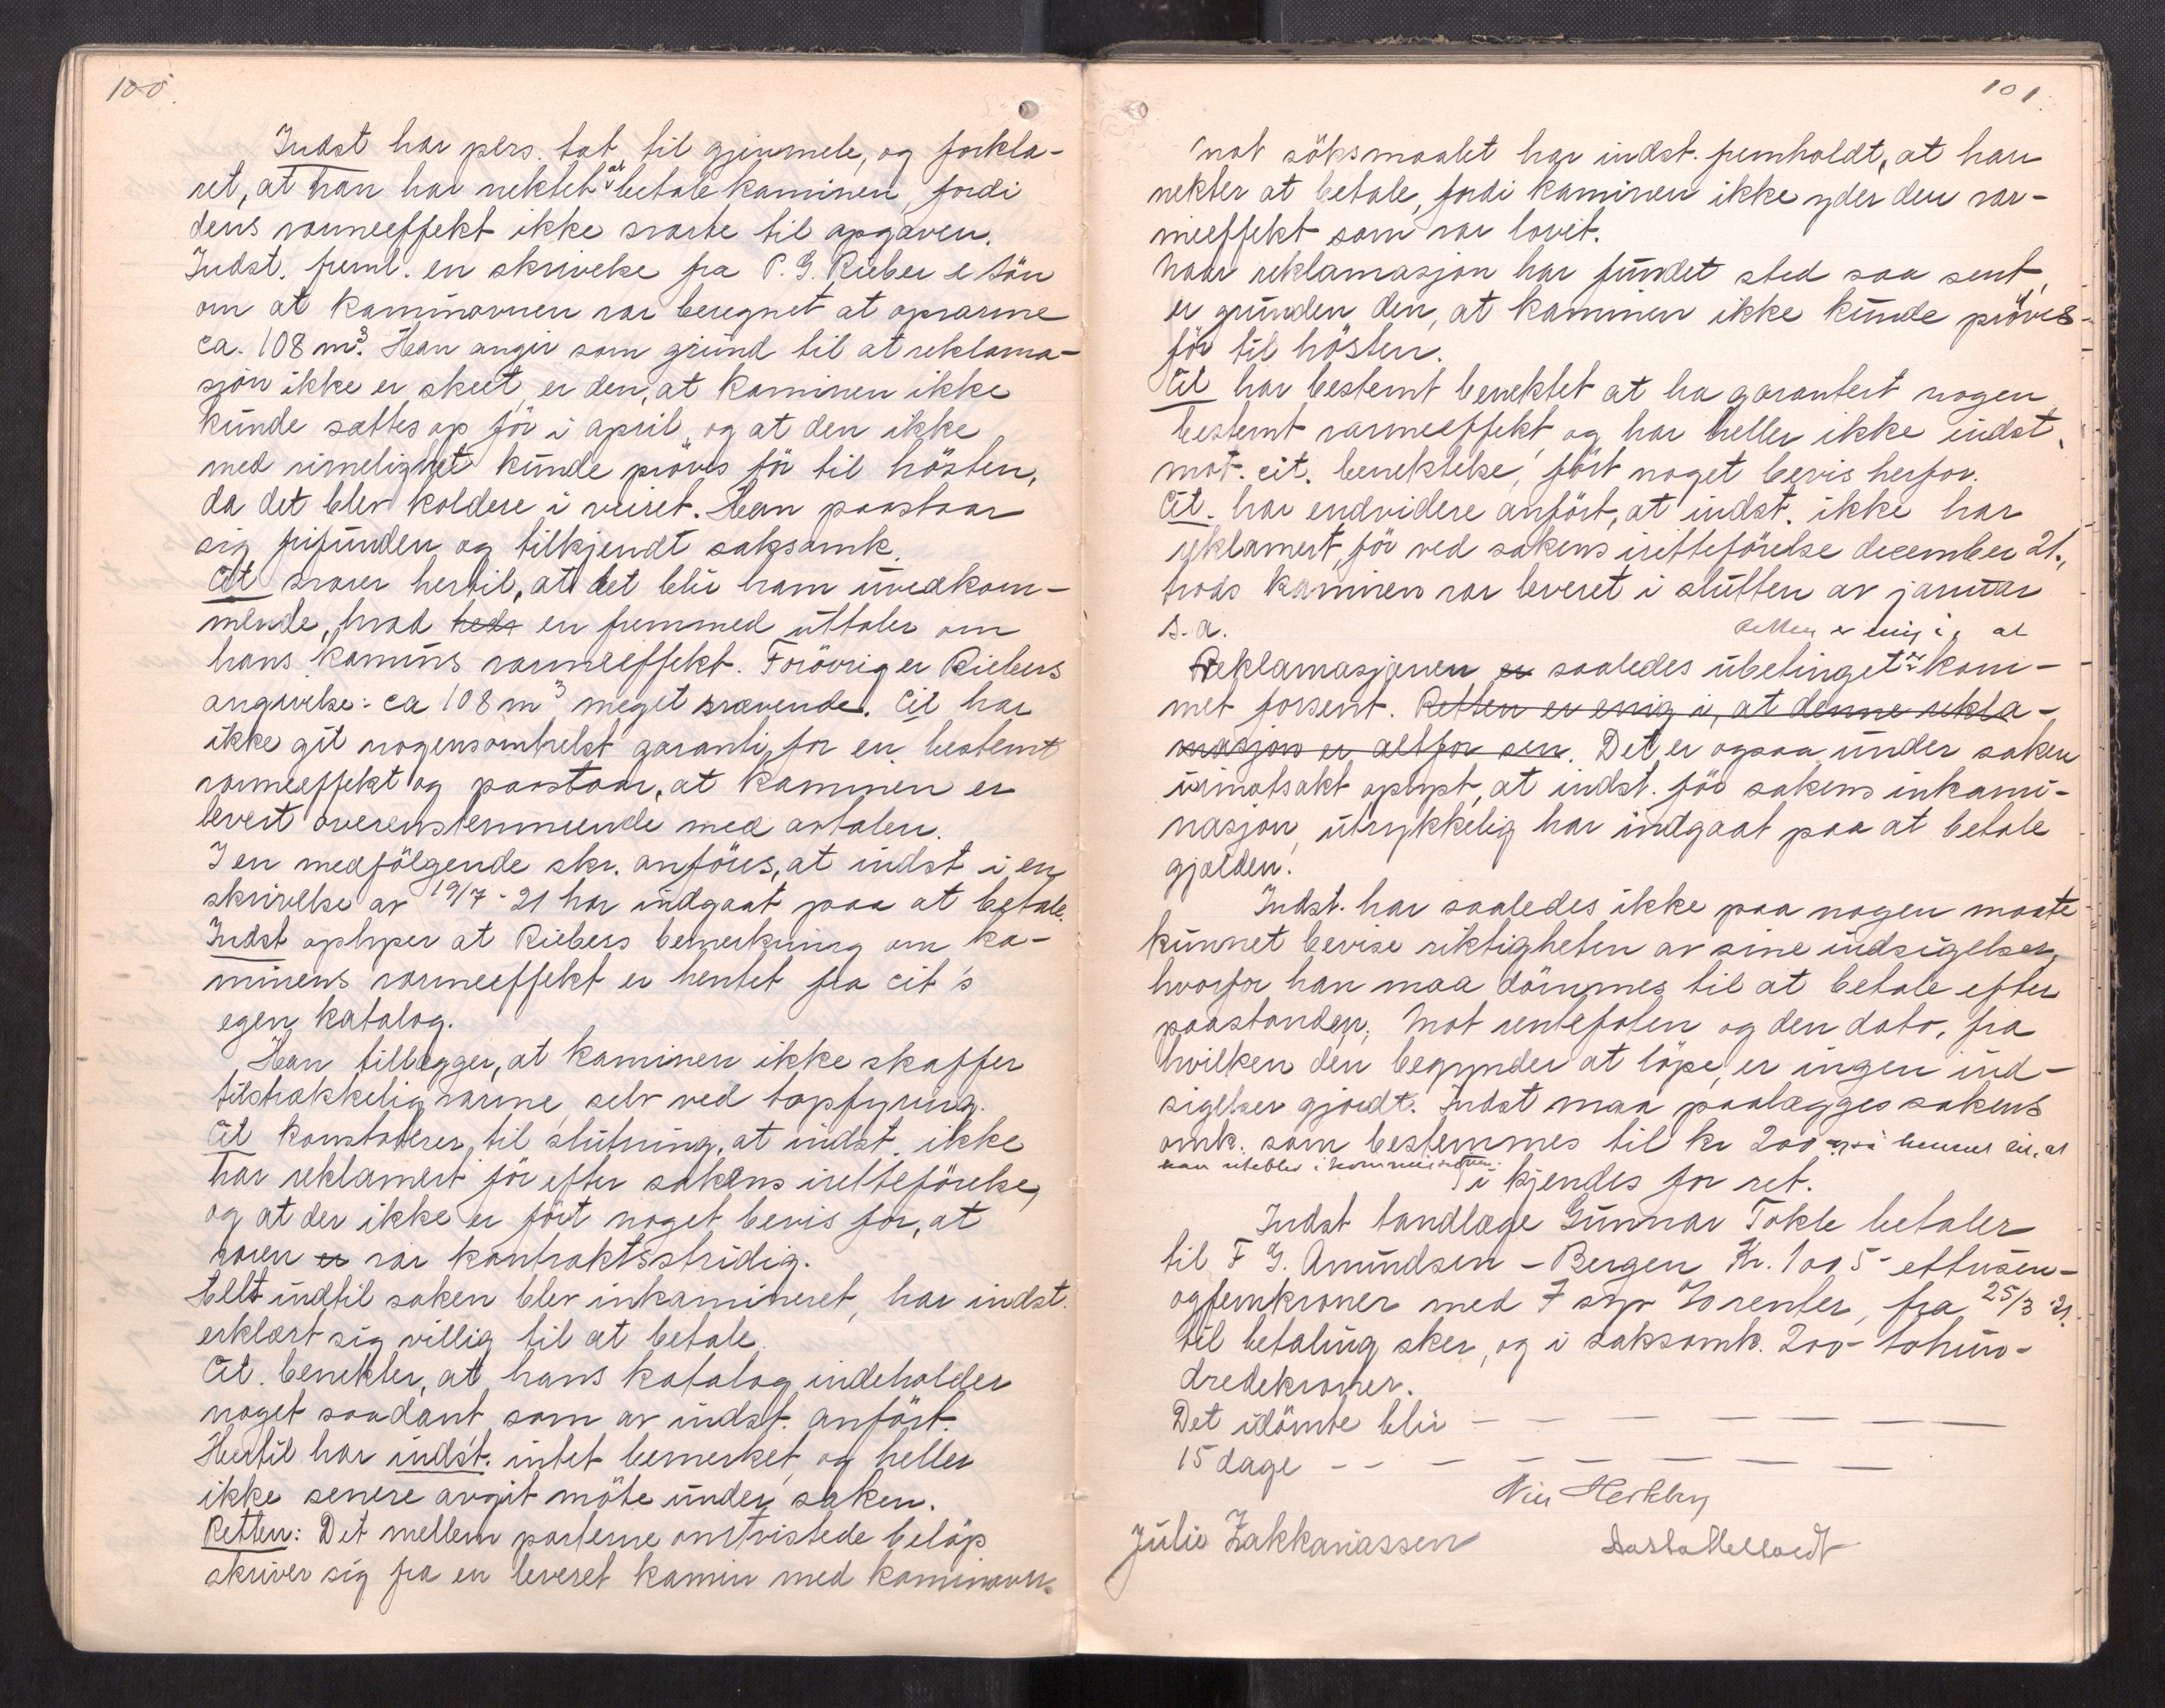 100.
Indst har pers. tat til gjenmele, og forkla-
ret, at han har nektet at betale kaminen, fordi
dens varmeeffekt ikke svarte til opgaven.
Indst. freml. en skrivelse fra P. G. Rieber & Sön
om at kaminovnen var beregnet at opvarme
ca. 108 m³. Han angir som grund til at reklama-
sjon ikke er skeet, er den, at kaminen ikke
kunde sættes op för i april, og at den ikke
med rimelighet kunde pröves för til hösten,
da det blev koldere i veiret. Han paastaar
sig frifunden og tilkjendt saksomk.
Cit svarer hertil, at det blir ham uvedkom-
mende, hvad heds en fremmed uttaler om
hans kamins varmeeffekt. Forövrig er Riebers
angivelse: ca 108 m³ meget svævende. Cit har
ikke git nogensomhelst garanti for en bestemt
varmeeffekt og paastaar, at kaminen er
levert overensstemmende med avtalen.
I en medfölgende skr. anföres, at indst i en
skrivelse av 19/7-21 har indgaat paa at betale.
Indst oplyser at Riebers bemerkning om ka-
minens varmeeffekt er hentet fra cit's
egen katalog.
Han tillægger, at kaminen ikke skaffer
tilstrækkelig varme, selv ved topfyring.
Cit konstaterer til slutning, at indst. ikke
har reklamert för efter sakens iretteförelse,
og at der ikke er fört noget bevis for, at
varen er var kontraktsstridig.
Helt indtil saken blev inkamineret, har indst.
erklært sig villig til at betale.
Cit. benekter, at hans katalog indeholder
noget saadant som av indst. anfört.
Hertil har indst. intet bemerket, og heller
ikke senere avgit möte under saken.
Retten: Det mellem parterne omtvistede belöp
skriver sig fra en leveret kamin med kaminovn.
101.
mot söksmaalet har indst. fremholdt, at han
nekter at betale, fordi kaminen ikke yder den var-
meeffekt som var lovet.
Naar reklamasjon har fundet sted saa sent,
er grunden den, at kaminen ikke kunde pröves
för til hösten.
Cit har bestemt benektet at ha garantert nogen
bestemt varmeeffekt, og har heller ikke indst.
mot cit. benektelse, fört noget bevis herfor.
Cit. har endvidere anfört, at indst. ikke har
reklamert, för ved sakens iretteförelse december 21.,
trods kaminen var leveret i slutten av januar
s. a.
Retten er enig i, at
Reklamasjonen er saaledes ubetinget er kom-
met forsent. Retten er enig i, at denne rekla-
masjon er altfor sen. Det er ogsaa under saken
uimotsakt oplyst, at indst. för sakens inkami-
nasjon, utrykkelig har indgaat paa at betale
gjælden.
Indst. har saaledes ikke paa nogen maate
kunnet bevise riktigheten av sine indsigelser,
hvorfor han maa dömmes til at betale efter
paastanden. Mot rentefoten og den dato, fra
hvilken den begynder at löpe, er ingen ind-
sigelser gjordt. Indst maa paalægges sakens
omk. som bestemmes til kr 200
i kjendes for ret.
Indst tandlæge Gunnar Tokle betaler
til F G. Amundsen - Bergen Kr. 1005- ettusen-
ogfemkroner med 7 syv % renter, fra 25/3 21.
til betaling sker, og i saksomk. 200- tohun-
dredekroner.
Det idömte blir — — — — — — —
15 dage — — — — — — —
Julie Zakkariassen